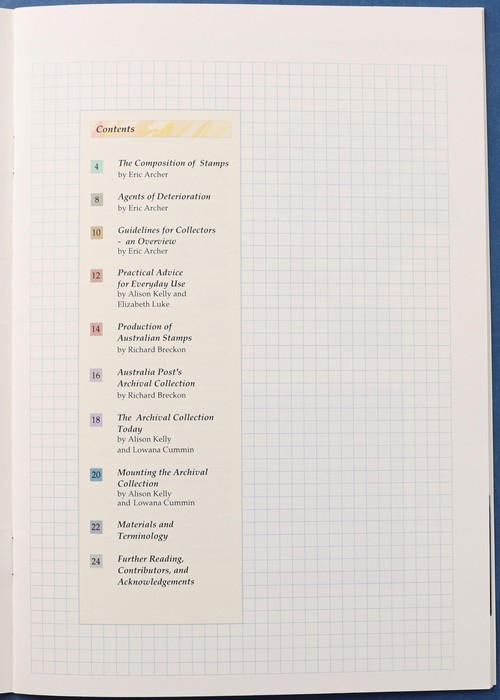 Contents
4 The Composition of Stamps
by Eric Archer
8 Agents of Deterioration
by Eric Archer
10 Guidelines for Collectors
- an Overview
by Eric Archer
12 Practical Advice
for Everyday Use
by Alison Kelly and
Elizabeth Luke
14 Production of
Australian Stamps
by Richard Breckon
16 Australia Post's
Archival Collection
by Richard Breckon
18 The Archival Collection
Today
by Alison Kelly
and Lowana Cummin
20 Mounting the Archival
Collection
by Alison Kelly
and Lowana Cummin
22 Materials and
Terminology
24 Further Reading,
Contributors, and
Acknowledgements